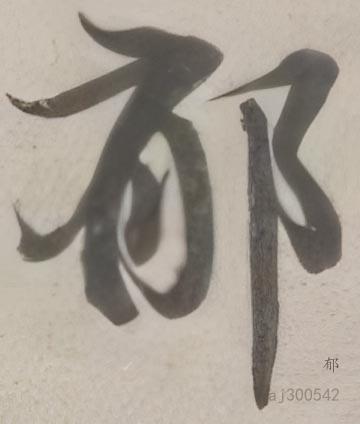 郁
郁
aj300542